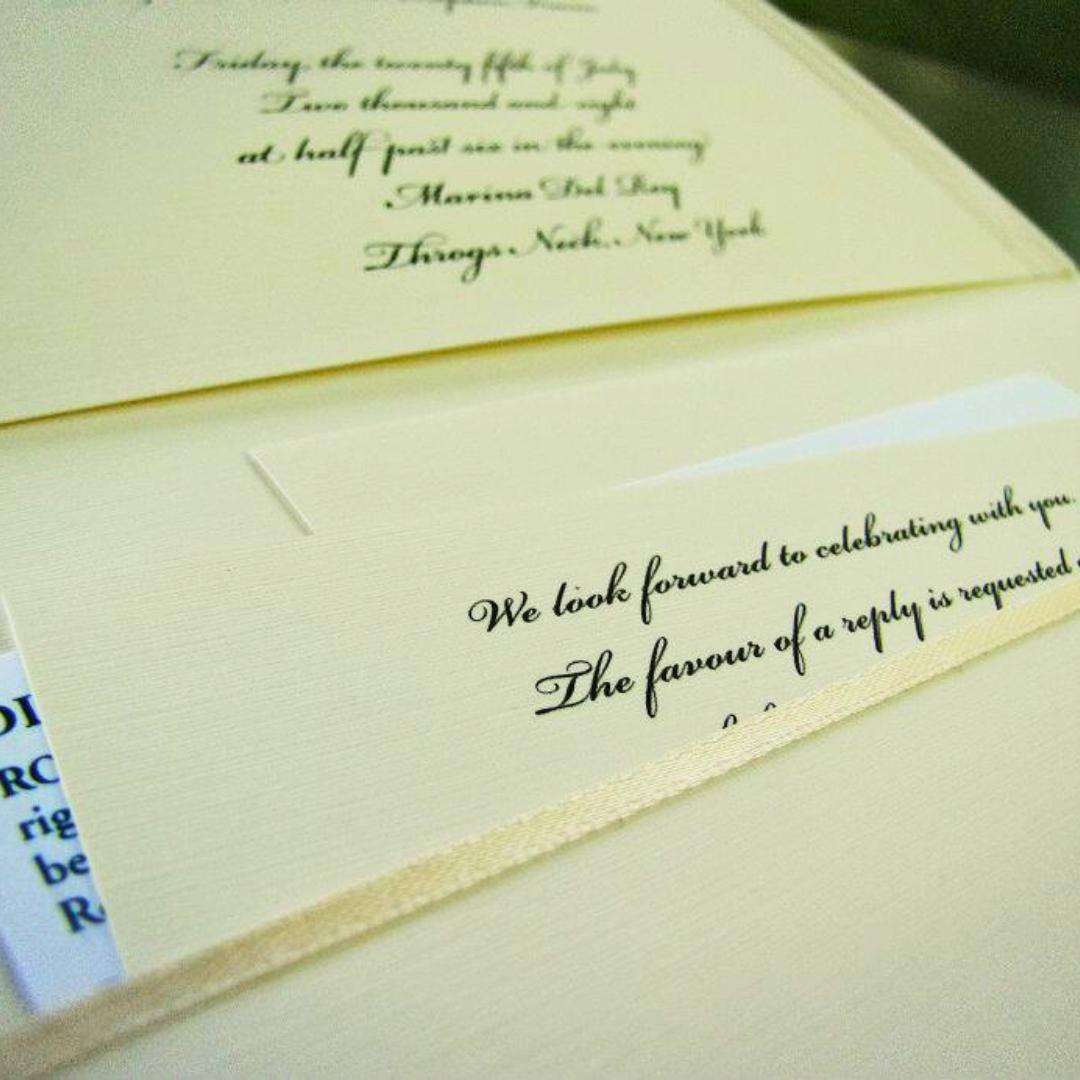 Friday, the twenty fifth of July
Two thousand and eight
at half past six in the evening
Marina Del Rey
Throgs Neck, New York
We look forward to celebrating with you.
The favour of a reply is requested
DI
RO
rig
be
R